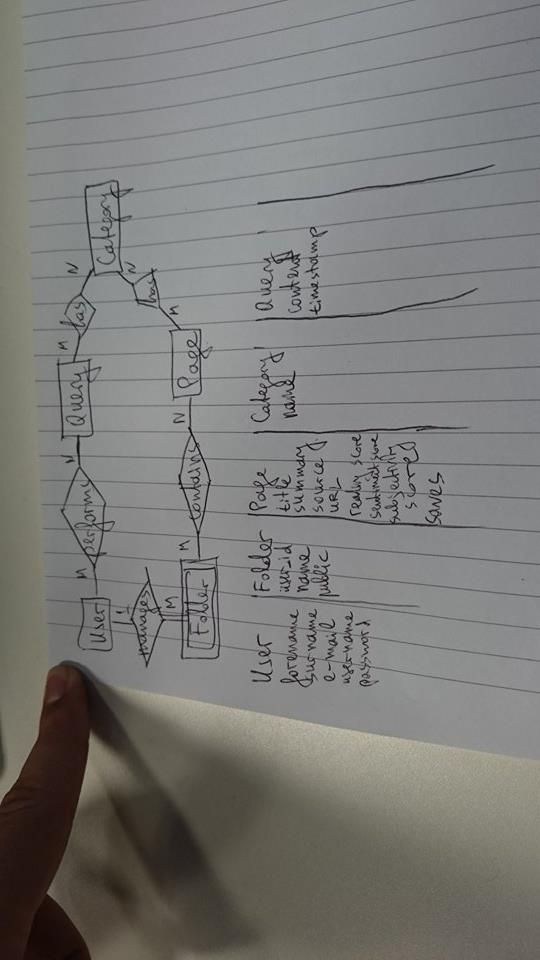 User
M
performs
N
Query
M
has
N
Category
1
manages
M
Folder
M
contains
N
Page
M
has
N
User
forename
surname
e-mail
username
password
Folder
user-id
name
public
Page
title
summary
source
URL
reading score
sentiment score
subjectivity
score
saves
Category
name
Query
content
timestamp